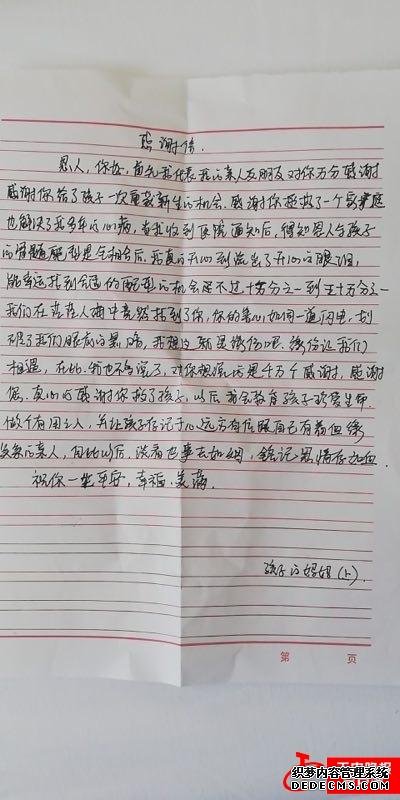 感谢信
恩人，你好，首先我代表我的亲人及朋友对你万分感谢
感谢你给了孩子一次重获新生的机会，感谢你拯救了一个家庭
也解决了我多年的心病，当我收到医院通知后，得知恩人与孩子
的骨髓配型是全相合后，我真的开心到流出了开心的眼泪，
能幸运找到合适的配型的机会是不过十万分之一到五十万分之一
我们在茫茫人海中竟然找到了你，你的爱心如同一道闪电，划
破了我们眼前的黑暗，我想这就是缘份吧，缘份让我们
相遇，在此，我也不多说了，对你想说的是千万个感谢，感谢
您，真心的感谢你救了孩子，以后我会教育孩子珍爱生命
做个有用之人，并让孩子们记于心远方有位跟自己有着血缘
关系的亲人，因此以后，淡看世事去如烟，铭记恩情存如血
祝你一生平安，幸福，美满
孩子的妈妈（卜）
第 页
天府晚报
织梦内容管理系统
DEDECMS.COM